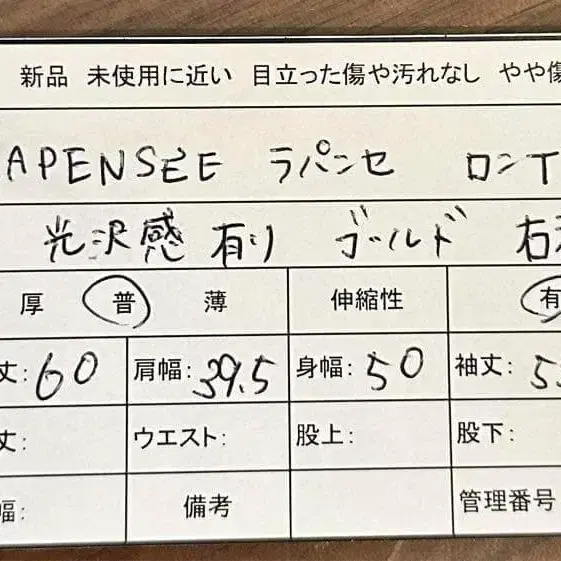 新品 未使用に近い 目立った傷や汚れなし やや傷
APENSEE ラパンセ ロンT
光沢感 有り ゴールド 右
厚 普 薄 伸縮性 有
丈:60 肩幅:39.5 身幅:50 袖丈:5
丈: ウエスト: 股上: 股下:
幅: 備考 管理番号